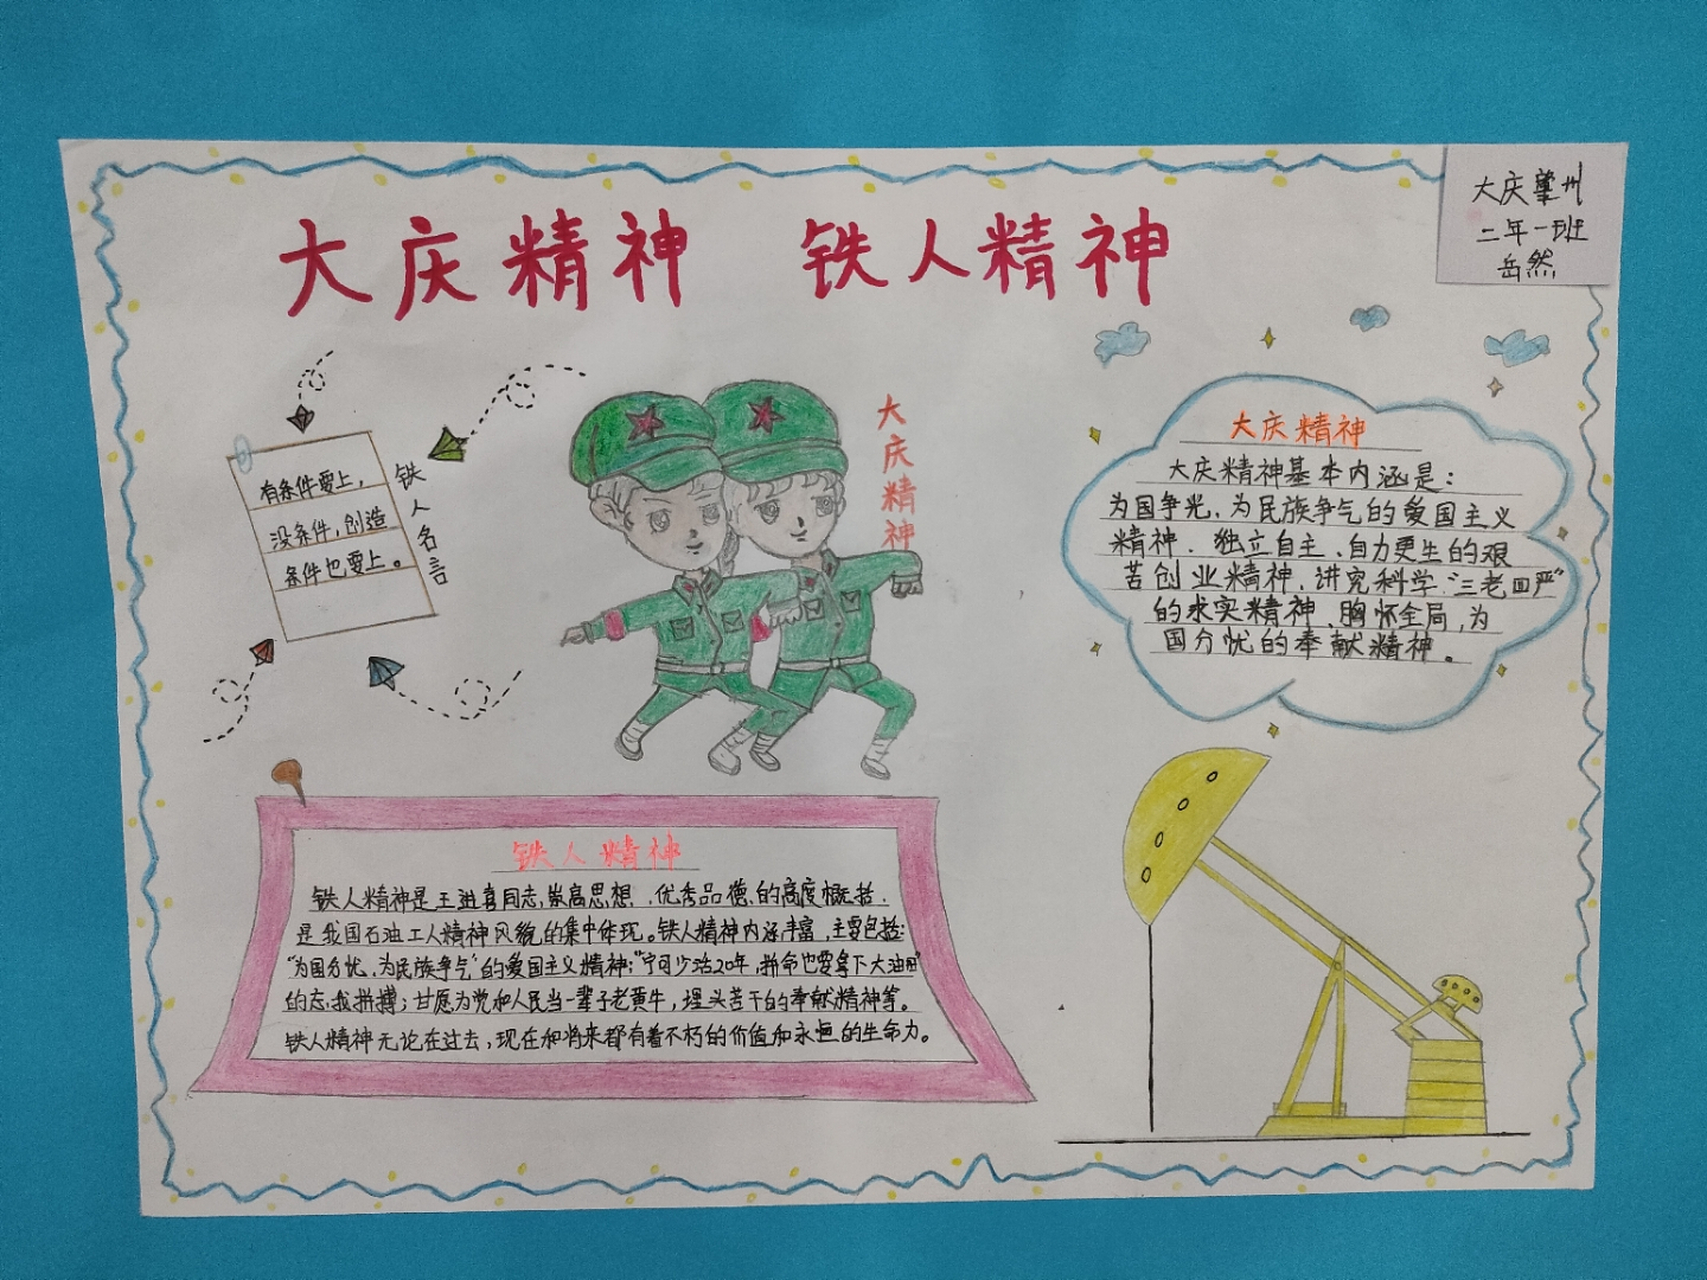 大庆精神 铁人精神
大庆肇州
二年一班
岳然
有条件要上，
没条件，创造
条件也要上。
铁人名言
大庆精神
大庆精神
大庆精神基本内涵是：
为国争光、为民族争气的爱国主义
精神、独立自主、自力更生的艰
苦创业精神、讲究科学“三老四严”
的求实精神、胸怀全局，为
国分忧的奉献精神。
铁人精神
铁人精神是王进喜同志，崇高思想、优秀品德的高度概括，
是我国石油工人精神风貌的集中体现。铁人精神内涵丰富，主要包括：
“为国分忧、为民族争气”的爱国主义精神；“宁可少活20年，拼命也要拿下大油田”
的忘我拼搏；甘愿为党和人民当一辈子老黄牛，埋头苦干的奉献精神等。
铁人精神无论在过去，现在和将来都有着不朽的价值和永恒的生命力。